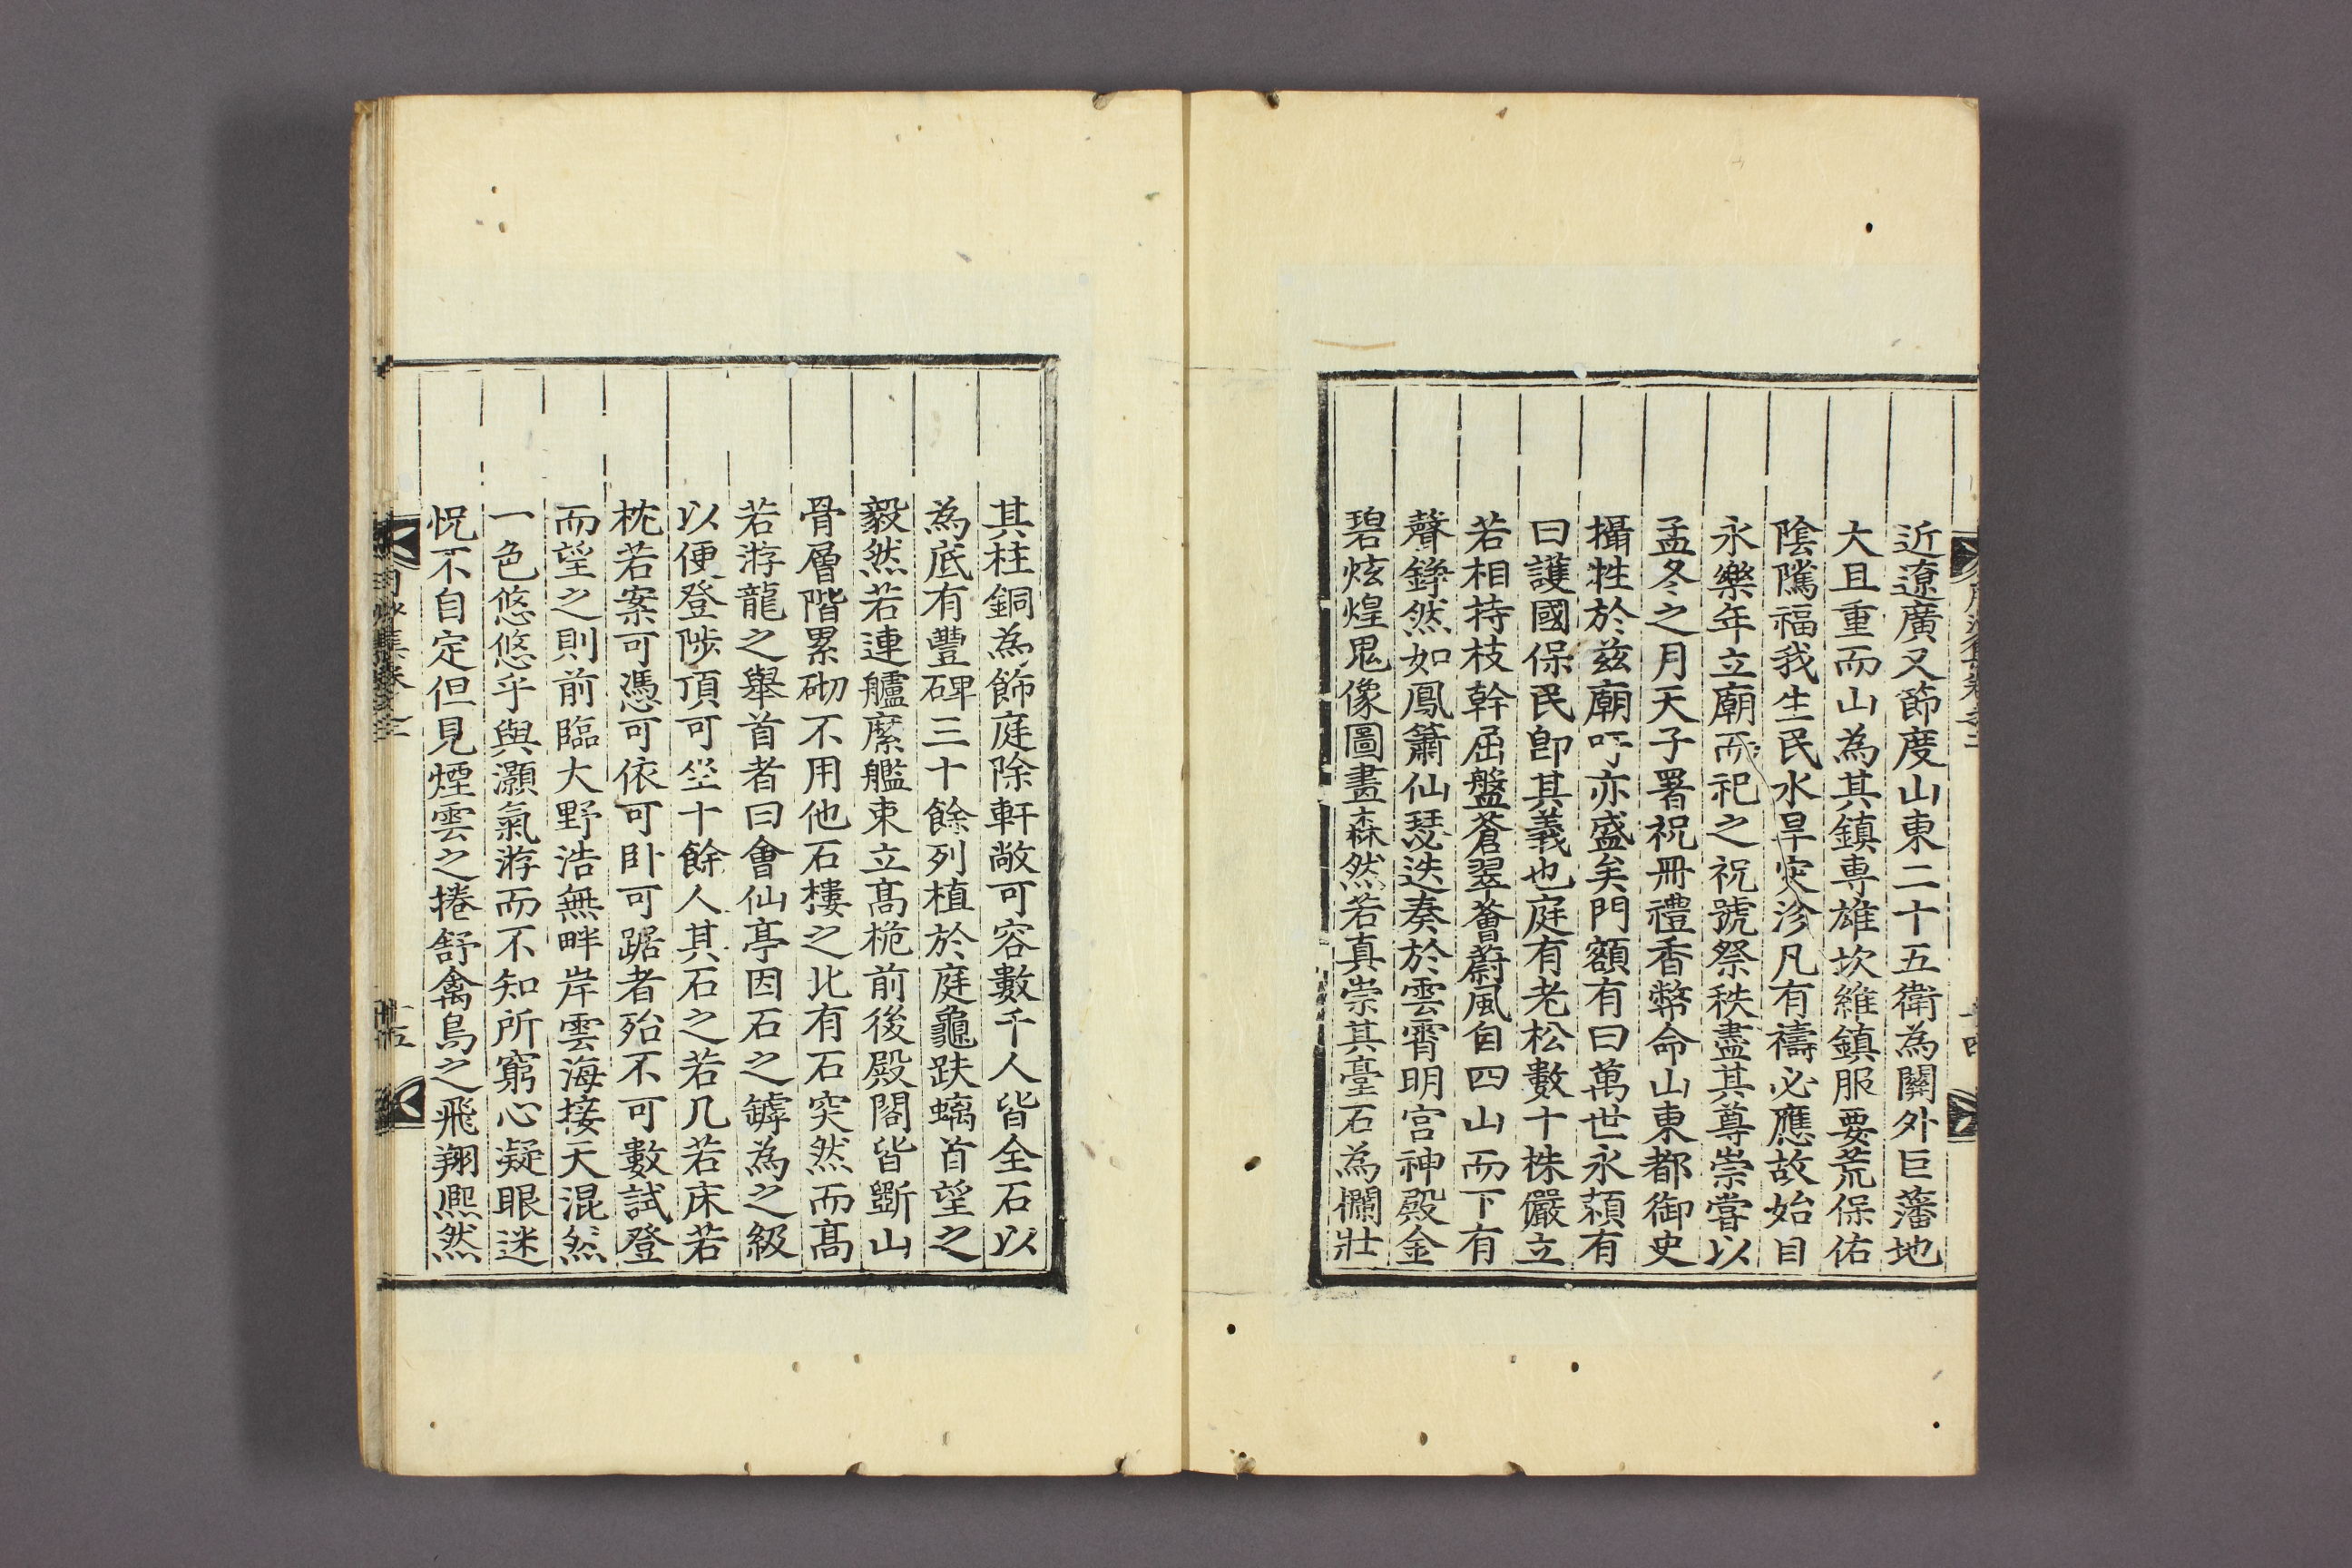 近遼廣又節度山東二十五衛為關外巨藩地
大且重而山為其鎮専雄坎維鎮服要荒保佑
陰隲福我生民水旱灾沴凡有禱必應故始自
永樂年立廟而祀之祝號祭秩盡其尊崇嘗以
孟冬之月天子署祝冊禮香幣命山東都御史
攝牲於兹廟吁亦盛矣門額有曰萬世永頼有
曰護國保民卽其義也庭有老松數十株儼立
若相持枝幹屈盤蒼翠薈蔚風自四山而下有
聲錚然如鳳簫仙瑟迭奏於雲霄明宮神殿金
碧炫煌鬼像圖畫森然若真崇其臺石為欄壯
其柱銅為飾庭除軒敞可容數千人皆全石以
為底有豐碑三十餘列植於庭龜趺螭首望之
毅然若連艫縻艦束立髙桅前後殿閣皆斲山
骨層階累砌不用他石樓之北有石突然而髙
若游龍之舉首者曰會仙亭因石之罅為之級
以便登陟頂可坐十餘人其石之若几若床若
枕若案可憑可依可卧可踞者殆不可數試登
而望之則前臨大野浩無畔岸雲海接天混然
一色悠悠乎與灝氣游而不知所窮心凝眼迷
怳不自定但見煙雲之捲舒禽鳥之飛翔熈然